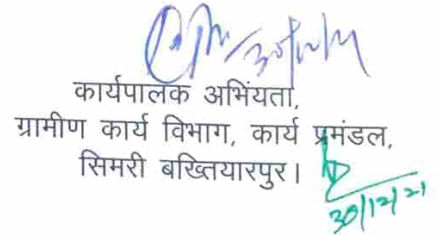 कार्यपालक अभिंयता,
ग्रामीण कार्य विभाग, कार्य प्रमंडल,
सिमरी बख्तियारपुर।
30/12/21